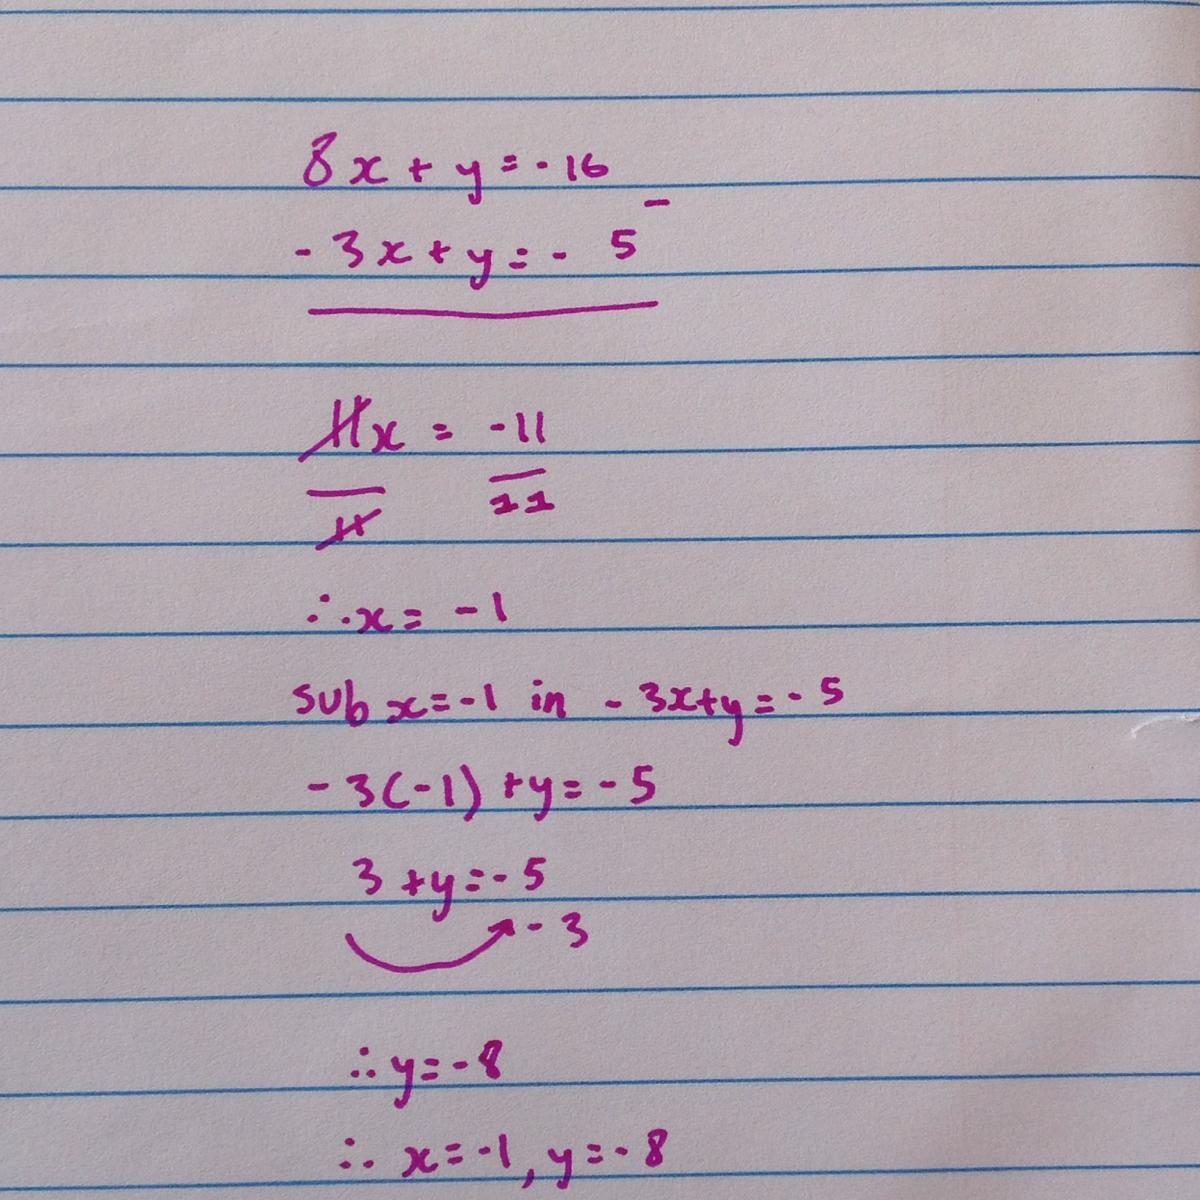 8x + y = -16
-
-3x + y = -5
11x = -11
11 11
∴ x = -1
sub x=-1 in -3x+y=-5
-3(-1) + y = -5
3 + y = -5
-3
∴ y = -8
∴ x=-1, y=-8